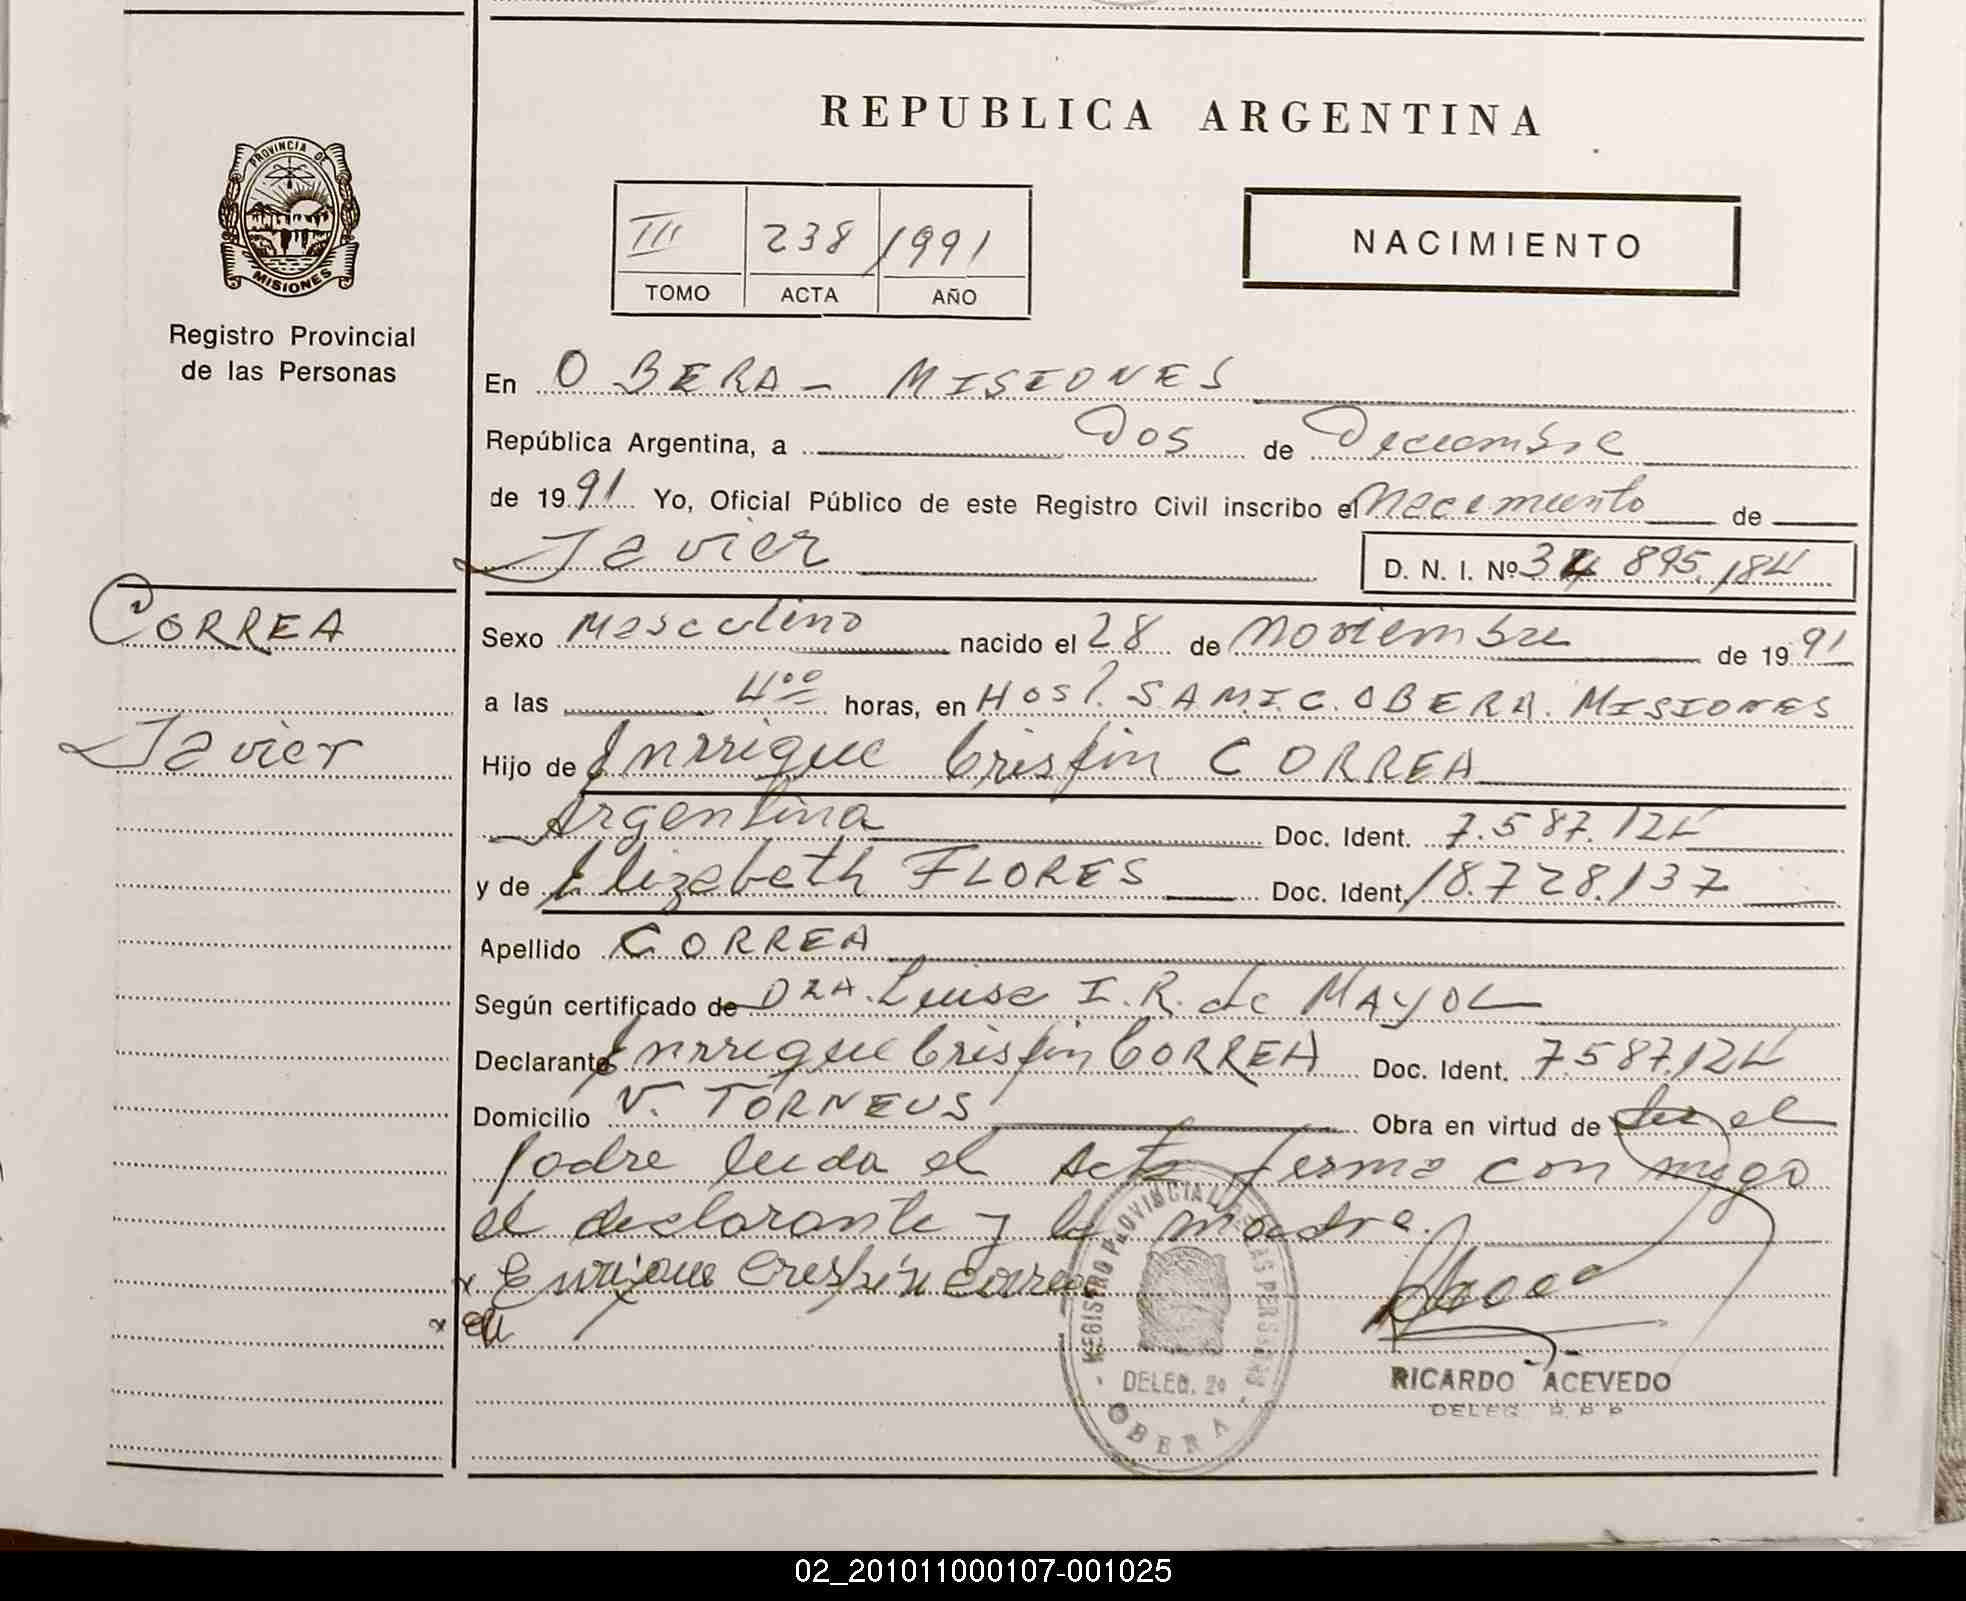 REPUBLICA ARGENTINA
PROVINCIA DE
MISIONES
Registro Provincial
de las Personas
III 238 / 1991
TOMO ACTA AÑO
NACIMIENTO
En OBERA - MISIONES
República Argentina, a Dos de Diciembre
de 1991 Yo, Oficial Público de este Registro Civil inscribo el Nacimiento de
Javier
D. N. I. Nº 34 895.184
CORREA
Javier
Sexo Masculino nacido el 28 de Noviembre de 1991
a las 4 00 horas, en Hosp. S.A.M.I.C. OBERA. MISIONES
Hijo de Enrrique Crispin CORREA
Argentina Doc. Ident. 7.587.124
y de Elizabeth FLORES Doc. Ident. 18.728.137
Apellido CORREA
Según certificado de DRA. Luisa I. R. de MAYOL
Declarante Enrrique Crispin CORREA Doc. Ident. 7.587.124
Domicilio V. TORNEUS Obra en virtud de ser el
padre leida el Acta firma con migo
el declarante y la madre.
x Enrique Crespin Correa
x
REGISTRO PROVINCIAL DE LAS PERSONAS
- DELEG. 2ª -
OBERA
RICARDO ACEVEDO
DELEG. R. P. P.
02_201011000107-001025